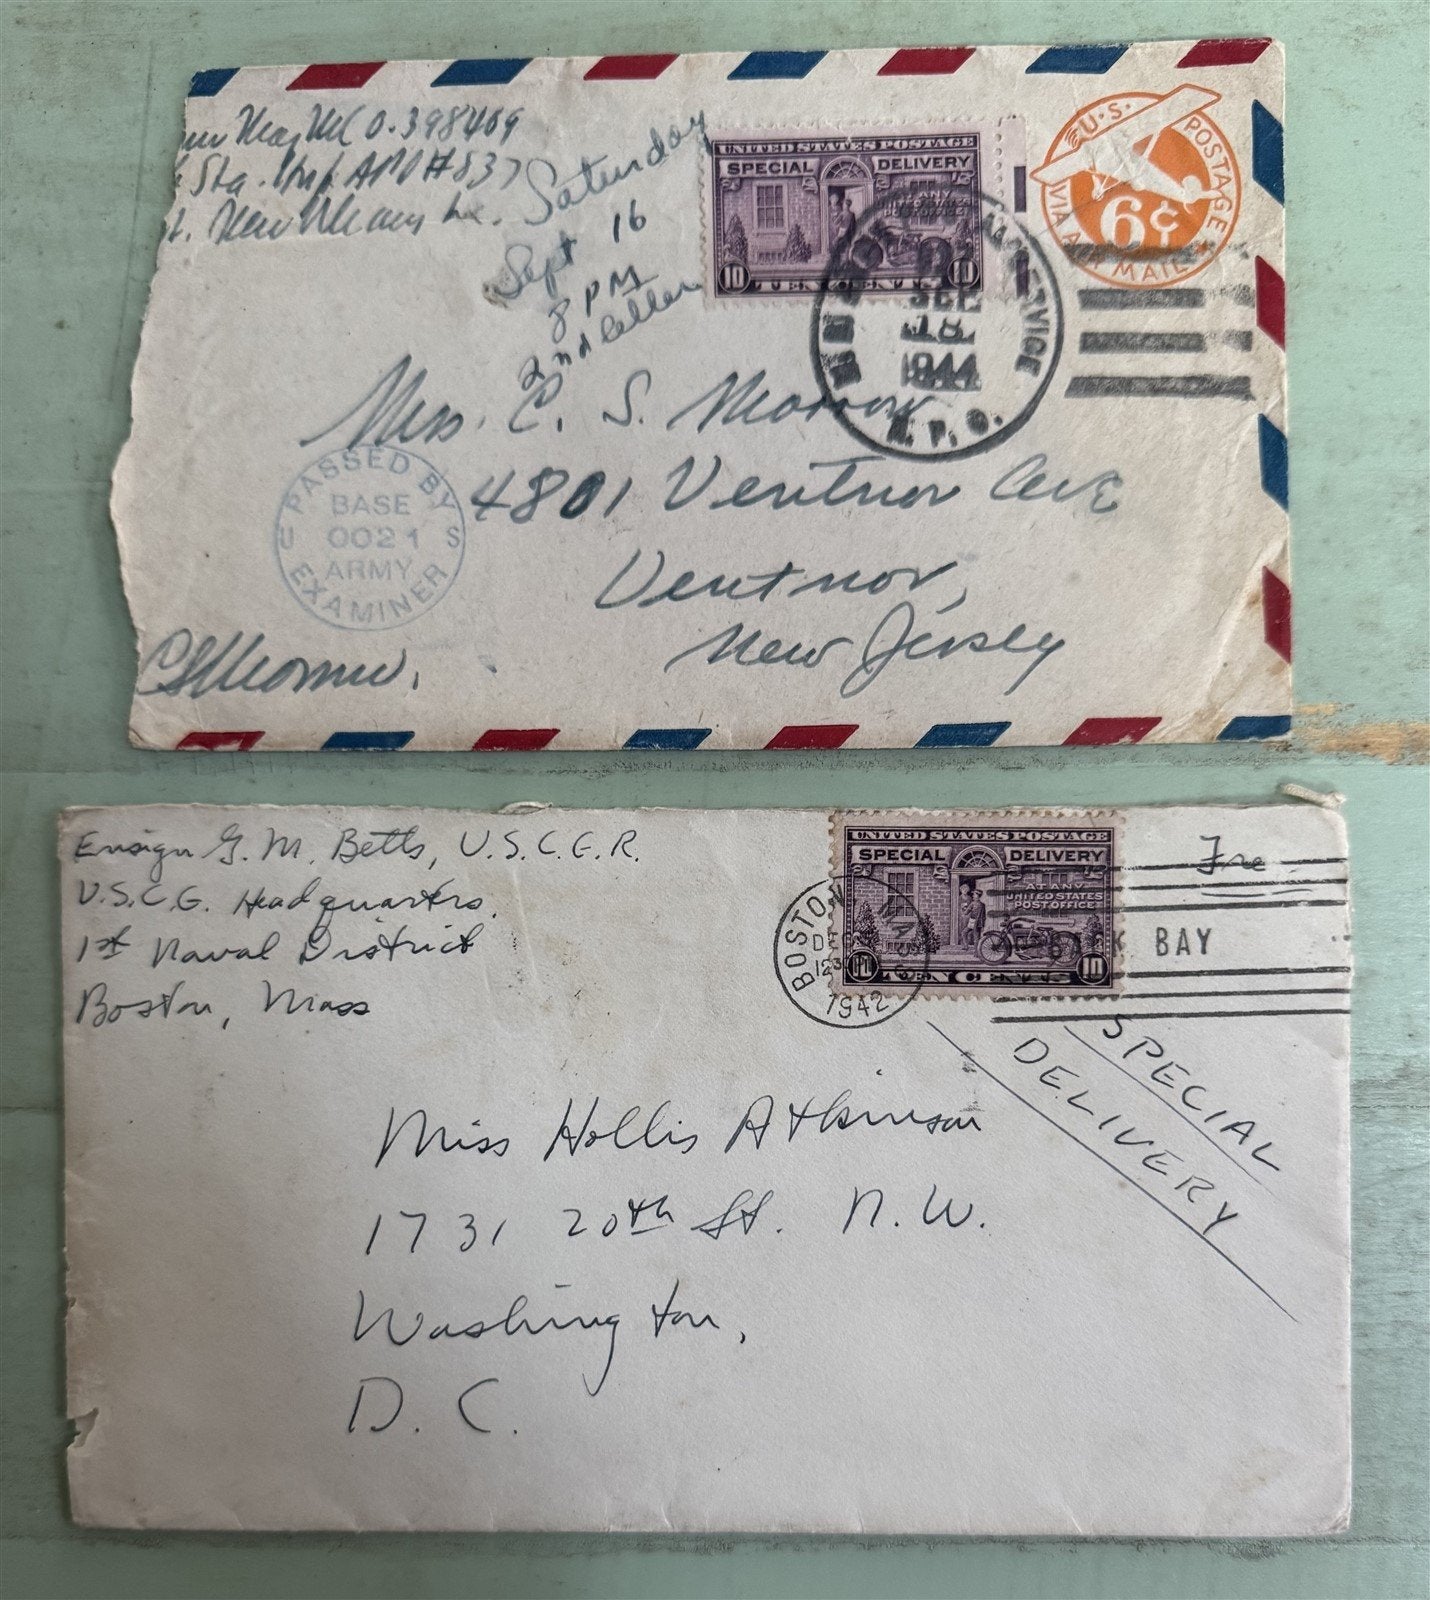 Maj MC O.398469
Sta. Hosp APO #837
New Orleans La.
Saturday
Sept 16
8 PM
2nd letter
UNITED STATES POSTAGE
SPECIAL DELIVERY
AT ANY
POST OFFICE
10 TEN CENTS 10
U.S. POSTAGE
6¢
VIA AIR MAIL
SERVICE
SEP
18
1944
A.P.O.
Mrs. C. S. Morrow
4801 Ventnor Ave
Ventnor,
New Jersey
PASSED BY
BASE
U 0021 S
ARMY
EXAMINER
Ensign G. M. Betts, U.S.C.G.R.
U.S.C.G. Headquarters.
1st Naval District
Boston, Mass
UNITED STATES POSTAGE
SPECIAL DELIVERY
AT ANY
UNITED STATES
POST OFFICE
10 TEN CENTS 10
Free
BOSTON MASS
DEC
1230 PM
1942
BACK BAY
SPECIAL
DELIVERY
Miss Hollis Atkinson
1731 20th St. N.W.
Washington,
D.C.